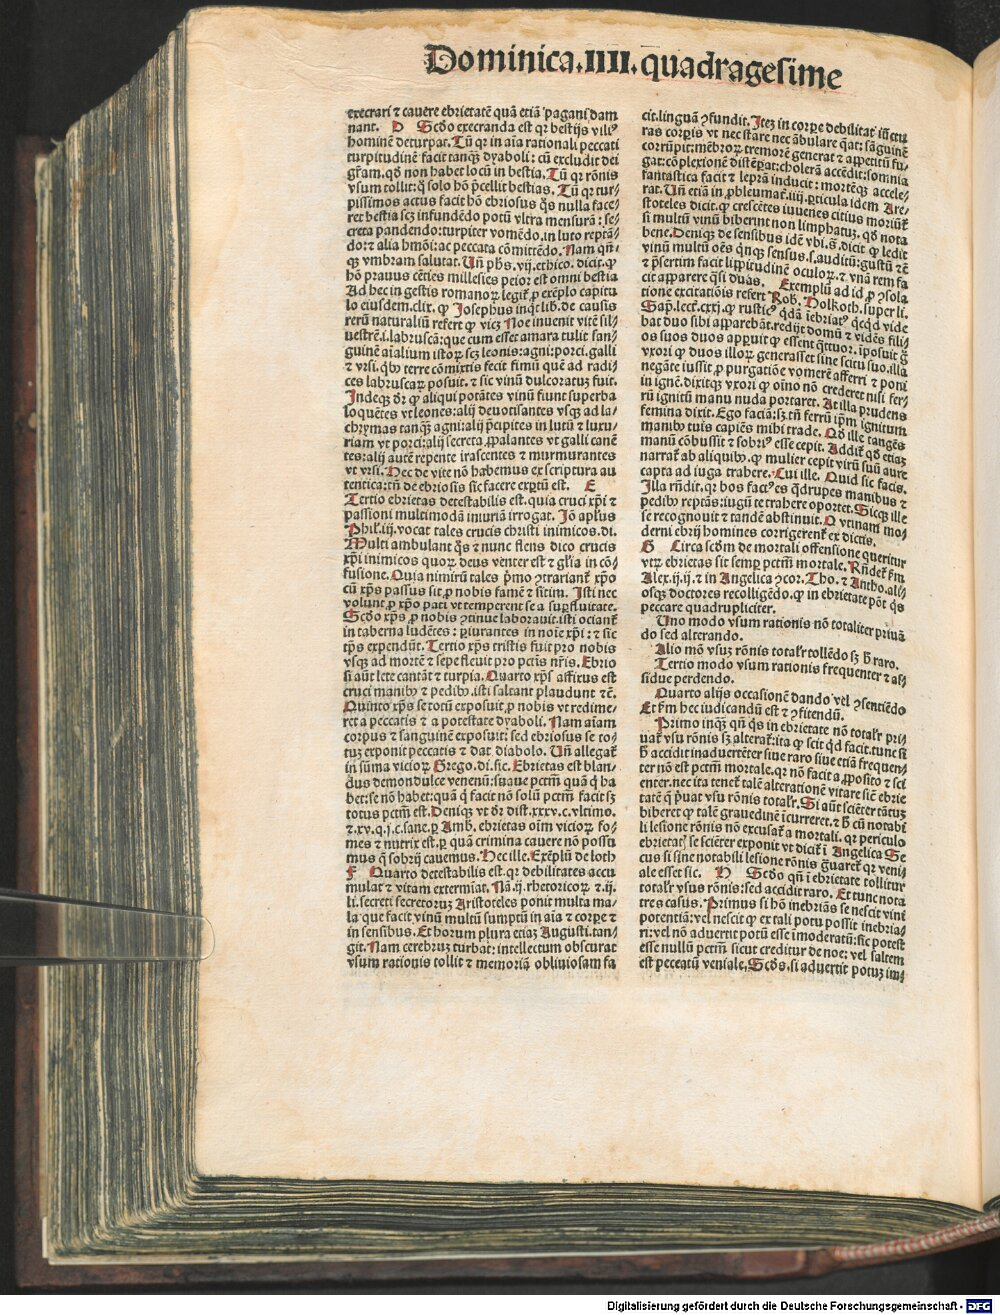 Dominica.IIII.quadragesime
execrari ⁊ cauere ebrietatē quā etiā pagani dam
nant. D Scd̓o execranda est qꝛ bestijs vili⁹
hominē deturpat. Tū qꝛ in aīa rationali peccati
turpitudinē facit tanqꝫ dyaboli: cū excludit dei
gr̄am. qd̓ non habet locū in bestia. Tū qꝛ rōnis
vsum tollit: q̄ solo hō p̄cellit bestias. Tū qꝛ tur⸗
pissimos actus facit hō ebriosus q̄s nulla face⸗
ret bestia scꝫ infundēdo potū vltra mensurā: se⸗
creta pandendo: turpiter vomēdo. in luto reptā⸗
do: ⁊ alia hmōi: ac peccata cōmittēdo. Nam qn̄⸗
qꝫ vmbram salutat. Un̄ ph̄s. vij. ethico. dicit. ꝙ
hō prauus cēties millesies peior est omni bestia
Ad hec in gestis romanoꝝ legiť ꝓ exēplo capitu
lo eiusdem. clix. ꝙ Josephus inq̇t lib. de causis
rerū naturaliū refert ꝙ vicꝫ Noe inuenit vitē sil⸗
uestrē. i. labruscā: que cum esset amara tulit san⸗
guinē aīalium istoꝝ scꝫ leonis: agni: porci. galli
⁊ vrsi. qb⁹ terre cōmixtis fecit fimū quē ad radi⸗
ces labruscaꝝ posuit. ⁊ sic vinū dulcoratuꝫ fuit.
Indeqꝫ d̓r ꝙ aliqui potātes vinū fiunt superba
loquētes vt leones: alij deuotisantes vsqꝫ ad la⸗
chrymas tanqꝫ agni: alij p̄cipites in lutū ⁊ luxu⸗
riam vt porci: alij secreta ꝓpalantes vt galli canē
tes: alij autē repente irascentes ⁊ murmurantes
vt vrsi. Hec de vite nō habemus ex scriptura au
tentica: tn̄ de ebriosis sic facere exꝑtū est. E
Tertio ebrietas detestabilis est. quia cruci xp̄i ⁊
passioni multimodā iniuriā irrogat. Jō apl̓us
Phil̓. iij. vocat tales crucis christi inimicos. di.
Multi ambulant q̄s ⁊ nunc flens dico crucis
xp̄i inimicos quoꝝ deus venter est ⁊ gl̓ia in cō⸗
fusione. Quia nimirū tales p̄mo ꝯtrarianť xp̄o
cū xp̄s passus sit ꝓ nobis famē ⁊ sitim. Isti nec
volunt ꝓ xp̄o pati vt temperent se a suꝑfluitate.
Scd̓o xp̄s ꝓ nobis ꝯtinue laborauit. isti ocianť
in taberna ludētes: ꝑiurantes in noīe xp̄i: ⁊ sic
tp̄s expendūt. Tertio xp̄s tristis fuit pro nobis
vsqꝫ ad mortē ⁊ sepe fleuit pro pctīs nr̄is. Ebrio
si aūt lete cantāt ⁊ turpia. Quarto xp̄s affixus est
cruci manib⁹ ⁊ pedib⁹. isti saltant plaudunt ⁊c̄.
Quinto xp̄s se totū exposuit ꝓ nobis vt redime⸗
ret a peccatis ⁊ a potestate dyaboli. Nam aīam
corpus ⁊ sanguinē exposuit: sed ebriosus se to⸗
tuꝫ exponit peccatis ⁊ dat diabolo. Un̄ allegať
in sūma vicioꝝ Grego. di. sic. Ebrietas est blan⸗
dus demon dulce venenū: suaue pctm̄ quā q̇ ha
bet: se nō habet: quā q̇ facit nō solū pctm̄ facit sꝫ
totus pctm̄ est. Deniqꝫ vt d̓r dist. xxxv. c. vltimo.
⁊. xv. q. j. c. sane. ꝑ Amb. ebrietas oīm vicioꝝ fo⸗
mes ⁊ nutrix est. ꝑ quā crimina cauere nō possu
mus q̄ sobrij cauemus. Hec ille. Exēplū de loth
F Quarto detestabilis est. qꝛ debilitates accu
mulat ⁊ vitam extermiat. Nā. ij. rhetoricoꝝ ⁊. ij.
li. secreti secretoruꝫ Aristoteles ponit multa ma⸗
la que facit vinū multū sumptū in aīa ⁊ corꝑe ⁊
in sensibus. Et horum plura etiaꝫ Augusti. tan⸗
git. Nam cerebruꝫ turbat: intellectum obscurat
vsum rationis tollit ⁊ memoriā obliuiosam fa
cit. linguā ꝯfundit. Iteꝫ in corꝑe debilitat iūctu
ras corꝑis vt nec stare nec ābulare q̄at: sāguinē
corrūpit: mēbroꝝ tremorē generat ⁊ appetitū fu⸗
gat: cōplexionē distēꝑat: cholerā accēdit: somnia
fantastica facit ⁊ leprā inducit: mortēqꝫ accele⸗
rat. Un̄ etiā in ꝓbleumat. iiij. ꝑticula idem Are⸗
stoteles dicit. ꝙ crescētes iuuenes citius moriūť
si multū vinū biberint non limphatuꝫ. qd̓ nota
bene. Deniqꝫ de sensibus idē vbi. s̄. dicit ꝙ ledit
vinū multū oēs q̄nqꝫ sensus. s. auditū: gustū ⁊c̄
⁊ p̄sertim facit lippitudinē oculoꝝ. ⁊ vnā rem fa
cit apparere q̄si duas. Exemplū ad id ꝓ ꝯsola
tione excitatiōis refert Rob. Holkoth. super li.
Sap. lect. cxxj. ꝙ rustic⁹ q̄dā īebriat⁹ qcqd vide
bat duo sibi apparebāt. redijt domū ⁊ vidēs fili⸗
os suos duos appruit ꝙ essent q̄ttuor. iposuit ḡ
vxori ꝙ duos illoꝝ generasset sine scitu suo. illa
negāte iussit ꝓ purgatiōe vomerē afferri ⁊ poni
in ignē. dixitqꝫ vxori ꝙ oīno nō crederet nisi fer⸗
rū ignitū manu nuda portaret. At illa prudens
femina dixit. Ego faciā: sꝫ tn̄ ferrū ip̄m ignitum
manib⁹ tuis capiēs mihi trade. Qd̓ ille tangēs
manū cōbussit ⁊ sobri⁹ esse cepit. Addiť qd̓ etiaꝫ
narrať ab aliquib⁹. ꝙ mulier cepit virū suū aure
capta ad iuga trahere. Cui ille. Quid sic facis.
Illa rn̄dit. qꝛ bos fact⁹ es q̄drupes manibus ⁊
pedib⁹ reptās: iugū te trahere oportet. Sicqꝫ ille
se recognouit ⁊ tandē abstinuit. O vtinam mo⸗
derni ebrij homines corrigerenť ex dictis.
G Circa scd̓m de mortali offensione queritur
vtꝝ ebrietas sit semꝑ pctm̄ mortale. Rn̄deť ẜm
Alex. ij. ij. ⁊ in Angelica ꝯcor. Tho. ⁊ Antho. ali⸗
osqꝫ doctores recolligēdo. ꝙ in ebrietate pōt q̄s
peccare quadrupliciter.
Uno modo vsum rationis nō totaliter priuā
do sed alterando.
Alio mō vsuꝫ rōnis totalr̓ tollēdo sꝫ h̄ raro.
Tertio modo vsum rationis frequenter ⁊ as⸗
sidue perdendo.
Quarto alijs occasionē dando vel ꝯsentiēdo
Et ẜm hec iudicandū est ⁊ ꝯfitendū.
Primo inqꝫ qn̄ q̄s in ebrietate nō totalr̓ pri⸗
uať vsu rōnis sꝫ alterať: ita ꝙ scit qd facit. tunc si
h̄ accidit inaduertēter siue raro siue etiā frequen⸗
ter nō est pctm̄ mortale. qꝛ nō facit a ꝓposito ⁊ sci
enter. nec ita teneť talē alterationē vitare siē ebrie
tatē q̄ p̄uat vsu rōnis totalr̓. Si aūt sciēter tātuꝫ
biberet ꝙ talē grauedinē icurreret. ⁊ h̄ cū notabi
li lesione rōnis nō excusať a mortali. qꝛ periculo
ebrietat̄ se sciēter exponit vt dicať i Angelica Se
cus si sine notabili lesione rōnis ḡuareť qꝛ veni⸗
ale esset sic. H Scd̓o qn̄ i ebrietate tollitur
totalr̓ vsus rōnis: sed accidit raro. Et tunc nota
tres casus. Primus si hō inebriās se nescit vini
potentiā: vel nescit ꝙ ex tali potu possit inebria⸗
ri: vel nō aduertit potū esse īmoderatū: sic potest
esse nullū pctm̄ sicut creditur de noe: vel saltem
est peccatū veniale. Scd̓s. si aduertit potuꝫ im⸗
Digitalisierung gefördert durch die Deutsche Forschungsgemeinschaft - DFG